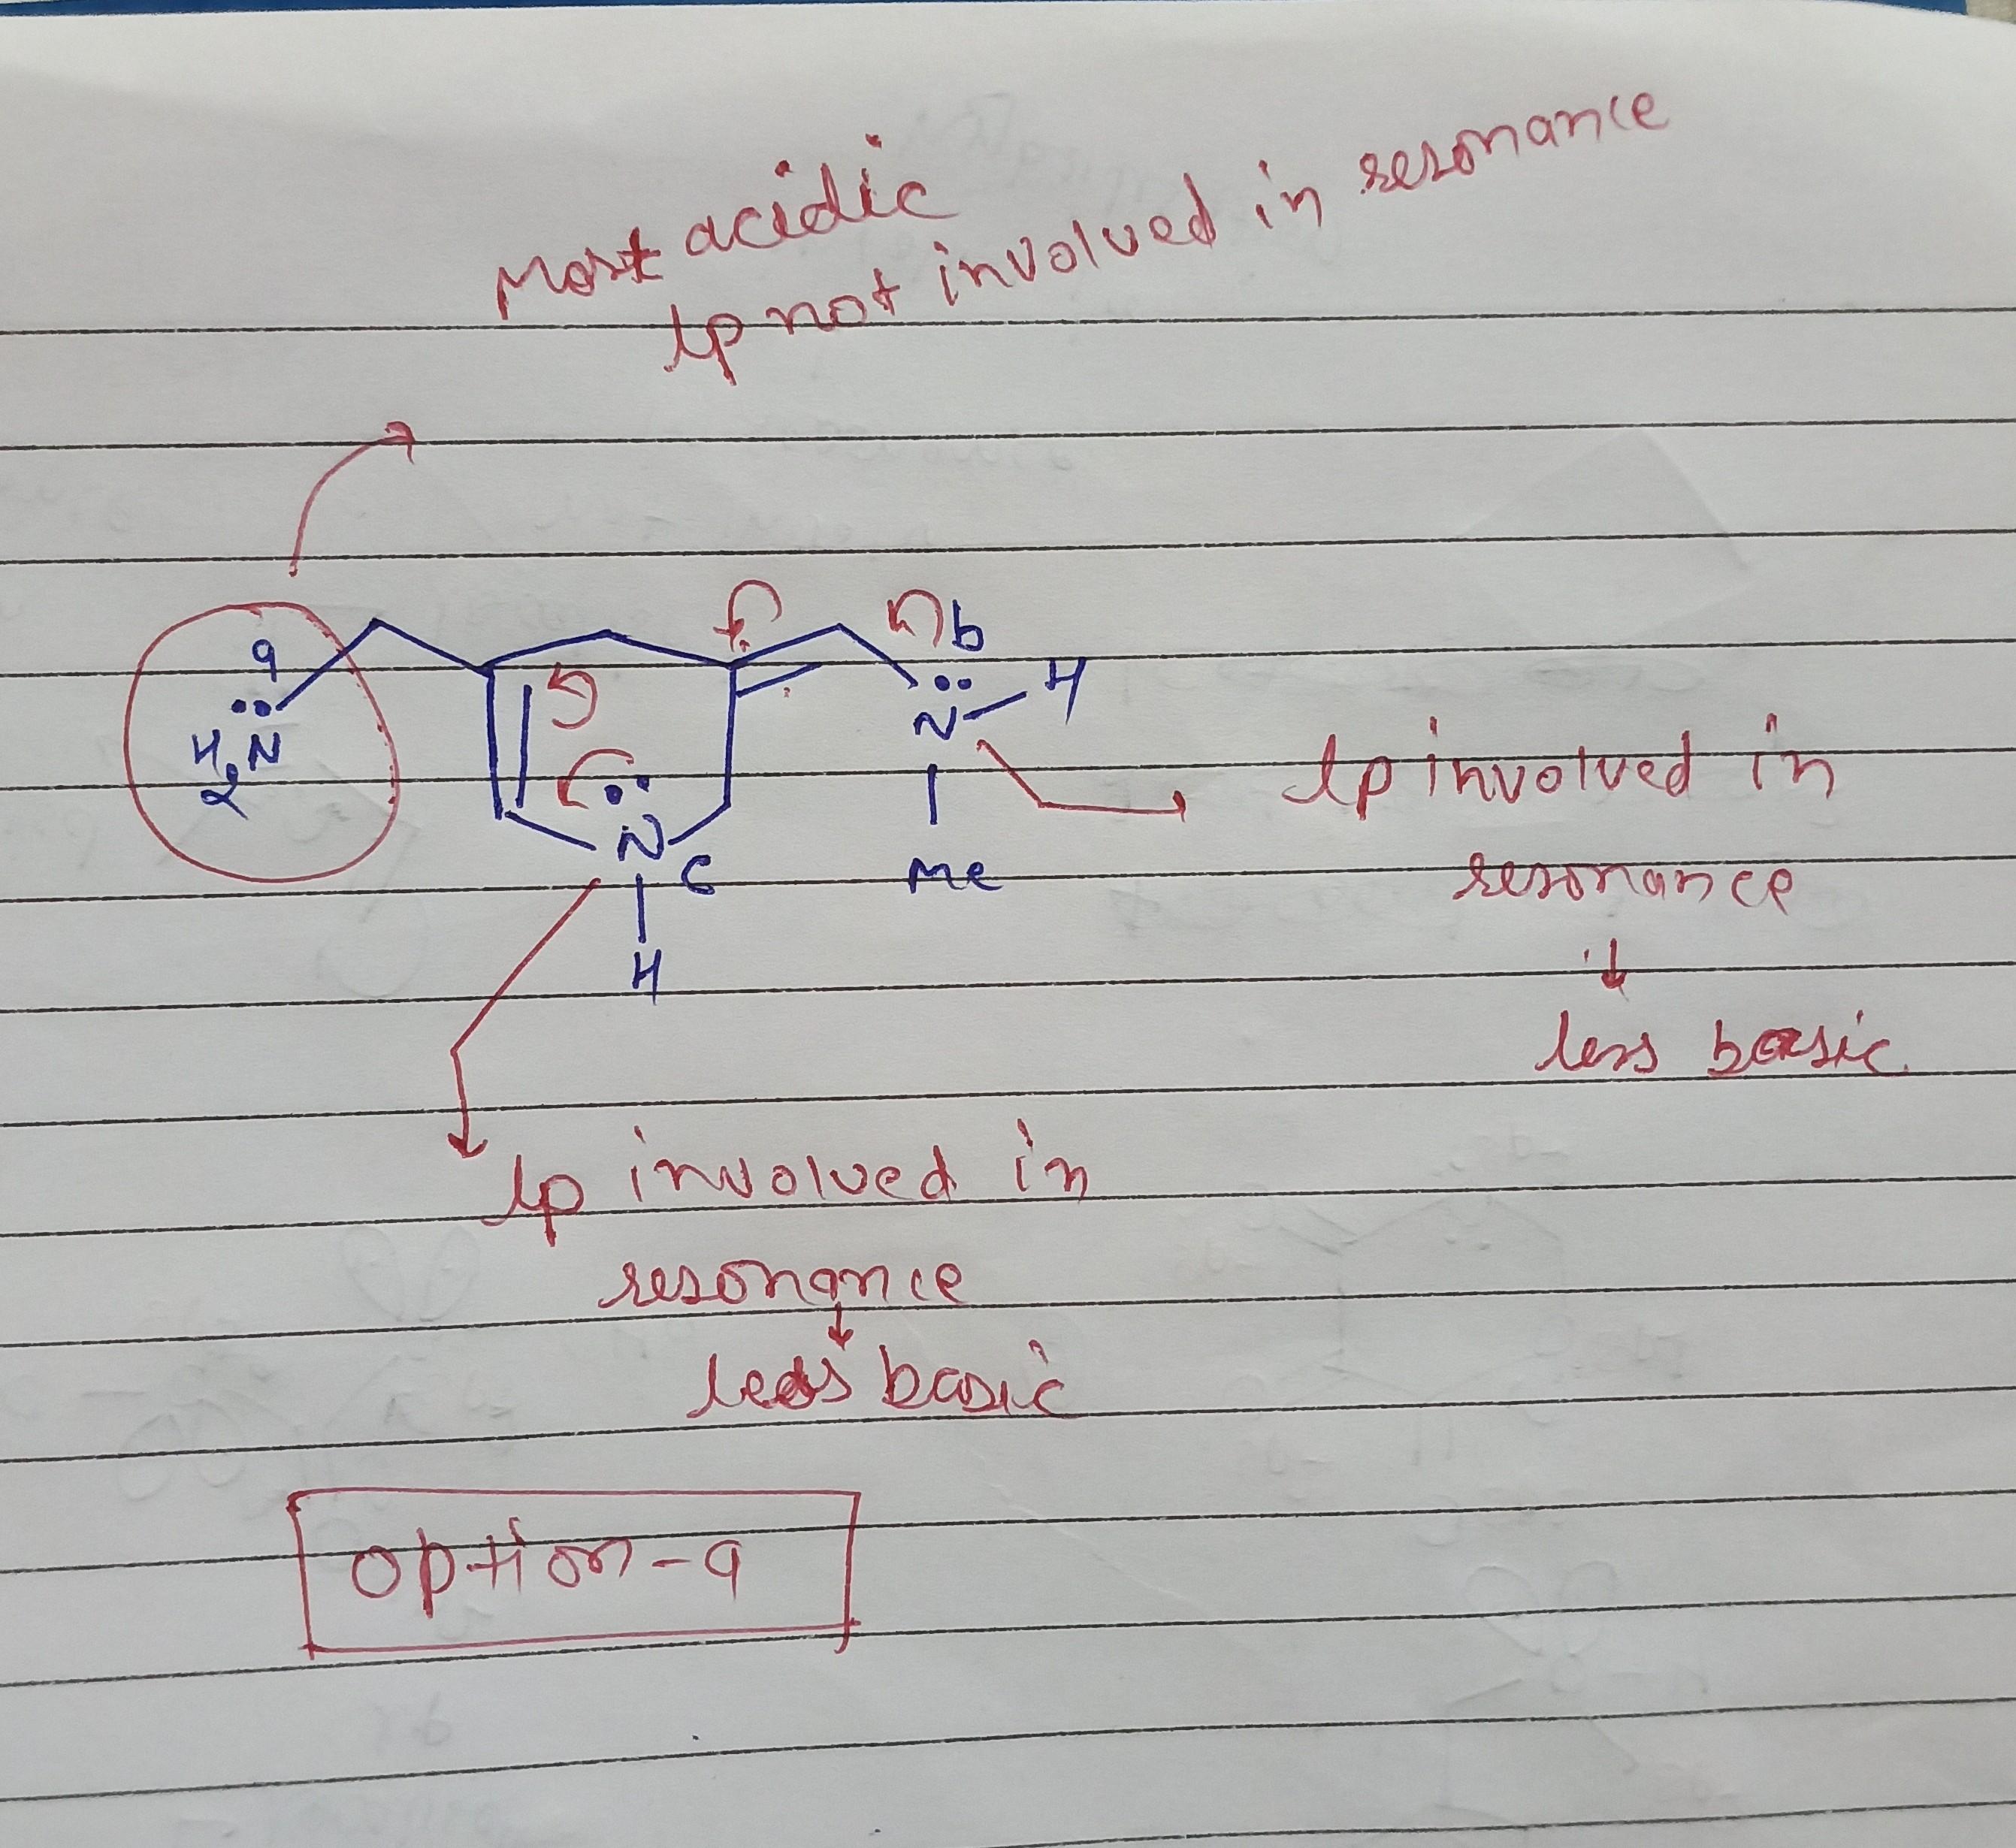 Most acidic
lp not involved in resonance
a
b
H₂N
N
H
Me
N
c
H
lp involved in
resonance
↓
less basic
lp involved in
resonance
↓
less basic
option-a